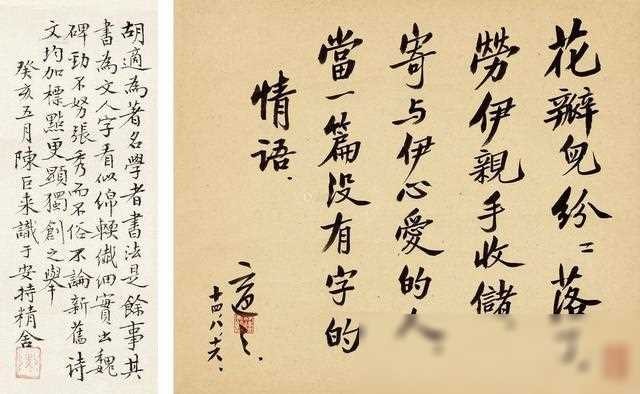 花瓣兒紛〻落
勞伊親手收儲
寄與伊心愛的人
當一篇没有字的
情語.
適之.
十四、八、十六、
胡適為著名學者書法是餘事其
書為文人字看似綿輭纖細實出魏
碑勁不努張秀而不俗不論新舊詩
文均加標點更顯獨創之舉
癸亥五月陳巨來識于安持精舍